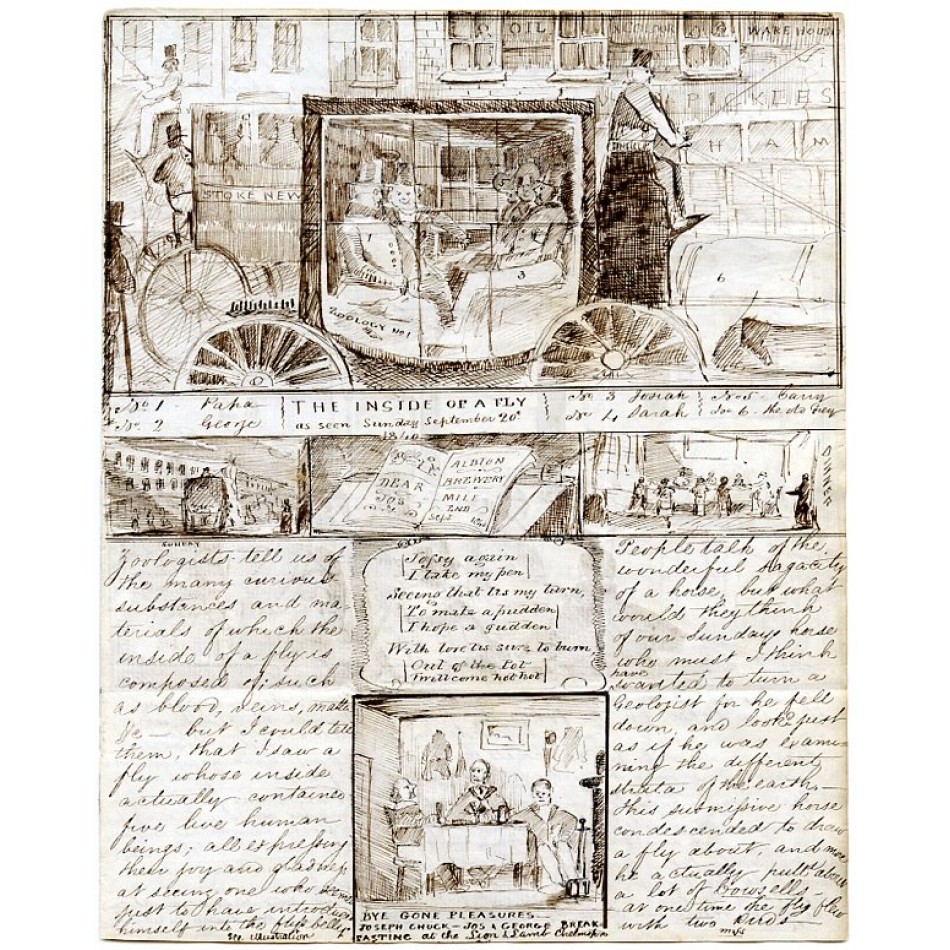 OIL
WAREHOUSE
PICKLES
HAM
STOKE NEW
1
2
3
4
6
ZOOLOGY No 1
No 1 Papa
No 2 George
THE INSIDE OF A FLY
as seen Sunday September 20
No 3 Josiah
No 4 Sarah
No 5
No 6 - the old Grey
DEAR
JOS
ALBION
BREWERY
MILE
END
Sept
DINNER
SUNDAY
Zoologists tell us of
the many curious
substances and ma-
terials of which the
inside of a fly is
composed of; such
as blood, veins, matter
&c - but I could tell
them, that I saw a
fly whose inside
actually contained
five live human
beings; all expressing
their joy and gladness
at seeing one who
just to have introduced
himself into the flys belly
See illustration
Jofsy again
I take my pen
Seeing that tis my turn,
To make a pudden
I hope a gudden
With love tis sure to burn,
Out of the Pot
I will come hot hot
BYE GONE PLEASURES
JOSEPH CHUCK - JOS & GEORGE BREAK-
FASTING at the Lion & Lamb Chelmsford
People talk of the
wonderful sagacity
of a horse, but what
would they think
of our Sundays horse
who must I think
have
wanted to turn a
Geologist for he fell
down, and looked just
as if he was exami-
ning the different
strata of the earth.-
this submissive horse
condescended to draw
a fly about, and more
he actually pulled about
a lot of Dowsells -
at one time the fly flew
with two Birds